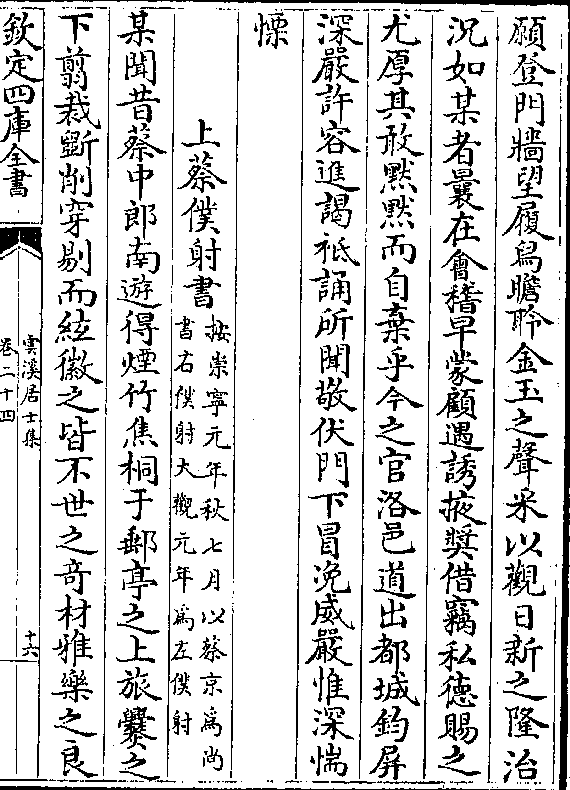 願登門牆望履舄瞻聆金玉之聲采以觀日新之隆治
況如某者曩在會稽早蒙顧遇誘掖奬借竊私德賜之
尤厚其敢黙黙而自棄乎今之官洛邑道出都城鈞屏
深嚴許容進謁祗誦所聞敬伏門下冒浼威嚴惟深惴
慄
上蔡僕射書按崇寧元年秋七月以蔡京為尚
書右僕射大觀元年為左僕射
某聞昔蔡中郎南遊得煙竹焦桐于郵亭之上旅爨之
下翦裁斵削穿剔而絃徽之皆不世之奇材雅樂之良
欽定四庫全書
雲溪居士集
卷二十四
十六